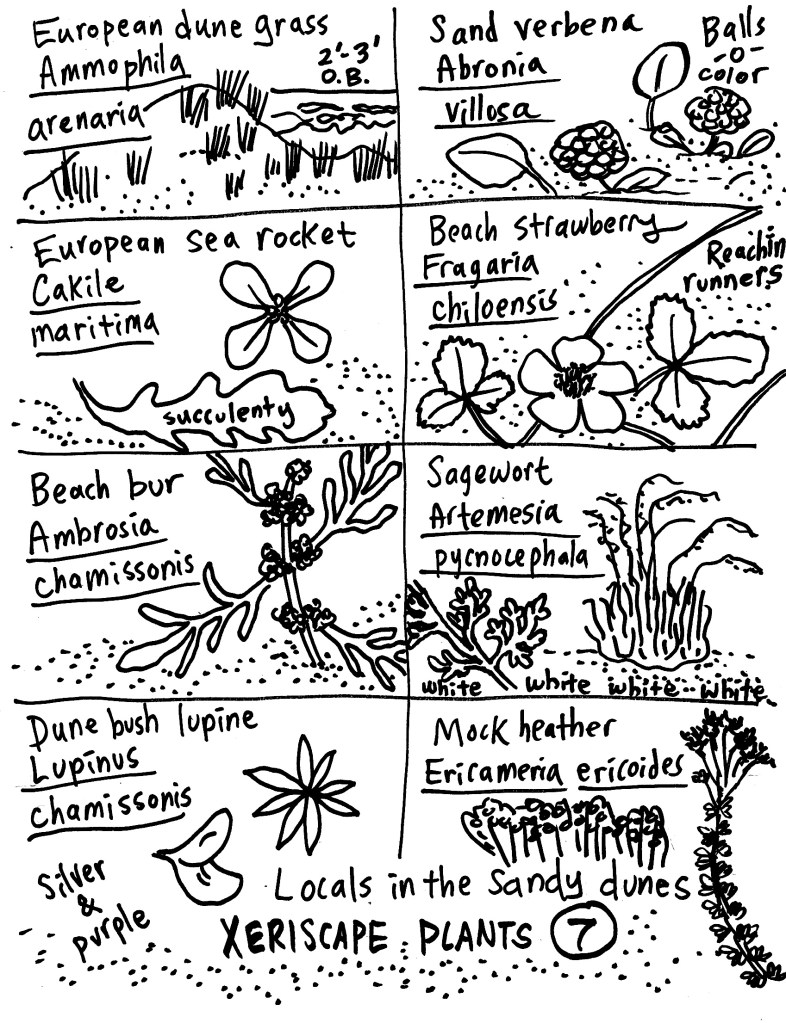 European dune grass
Ammophila
arenaria
2'-3'
O.B.
Sand verbena
Abronia
villosa
Balls
-o-
color
European sea rocket
Cakile
maritima
succulenty
Beach strawberry
Fragaria
chiloensis
Reachin
runners
Beach bur
Ambrosia
chamissonis
Sagewort
Artemesia
pycnocephala
white white white white
Dune bush lupine
Lupinus
chamissonis
Silver
&
purple
Mock heather
Ericameria ericoides
Locals in the Sandy dunes
XERISCAPE PLANTS 7